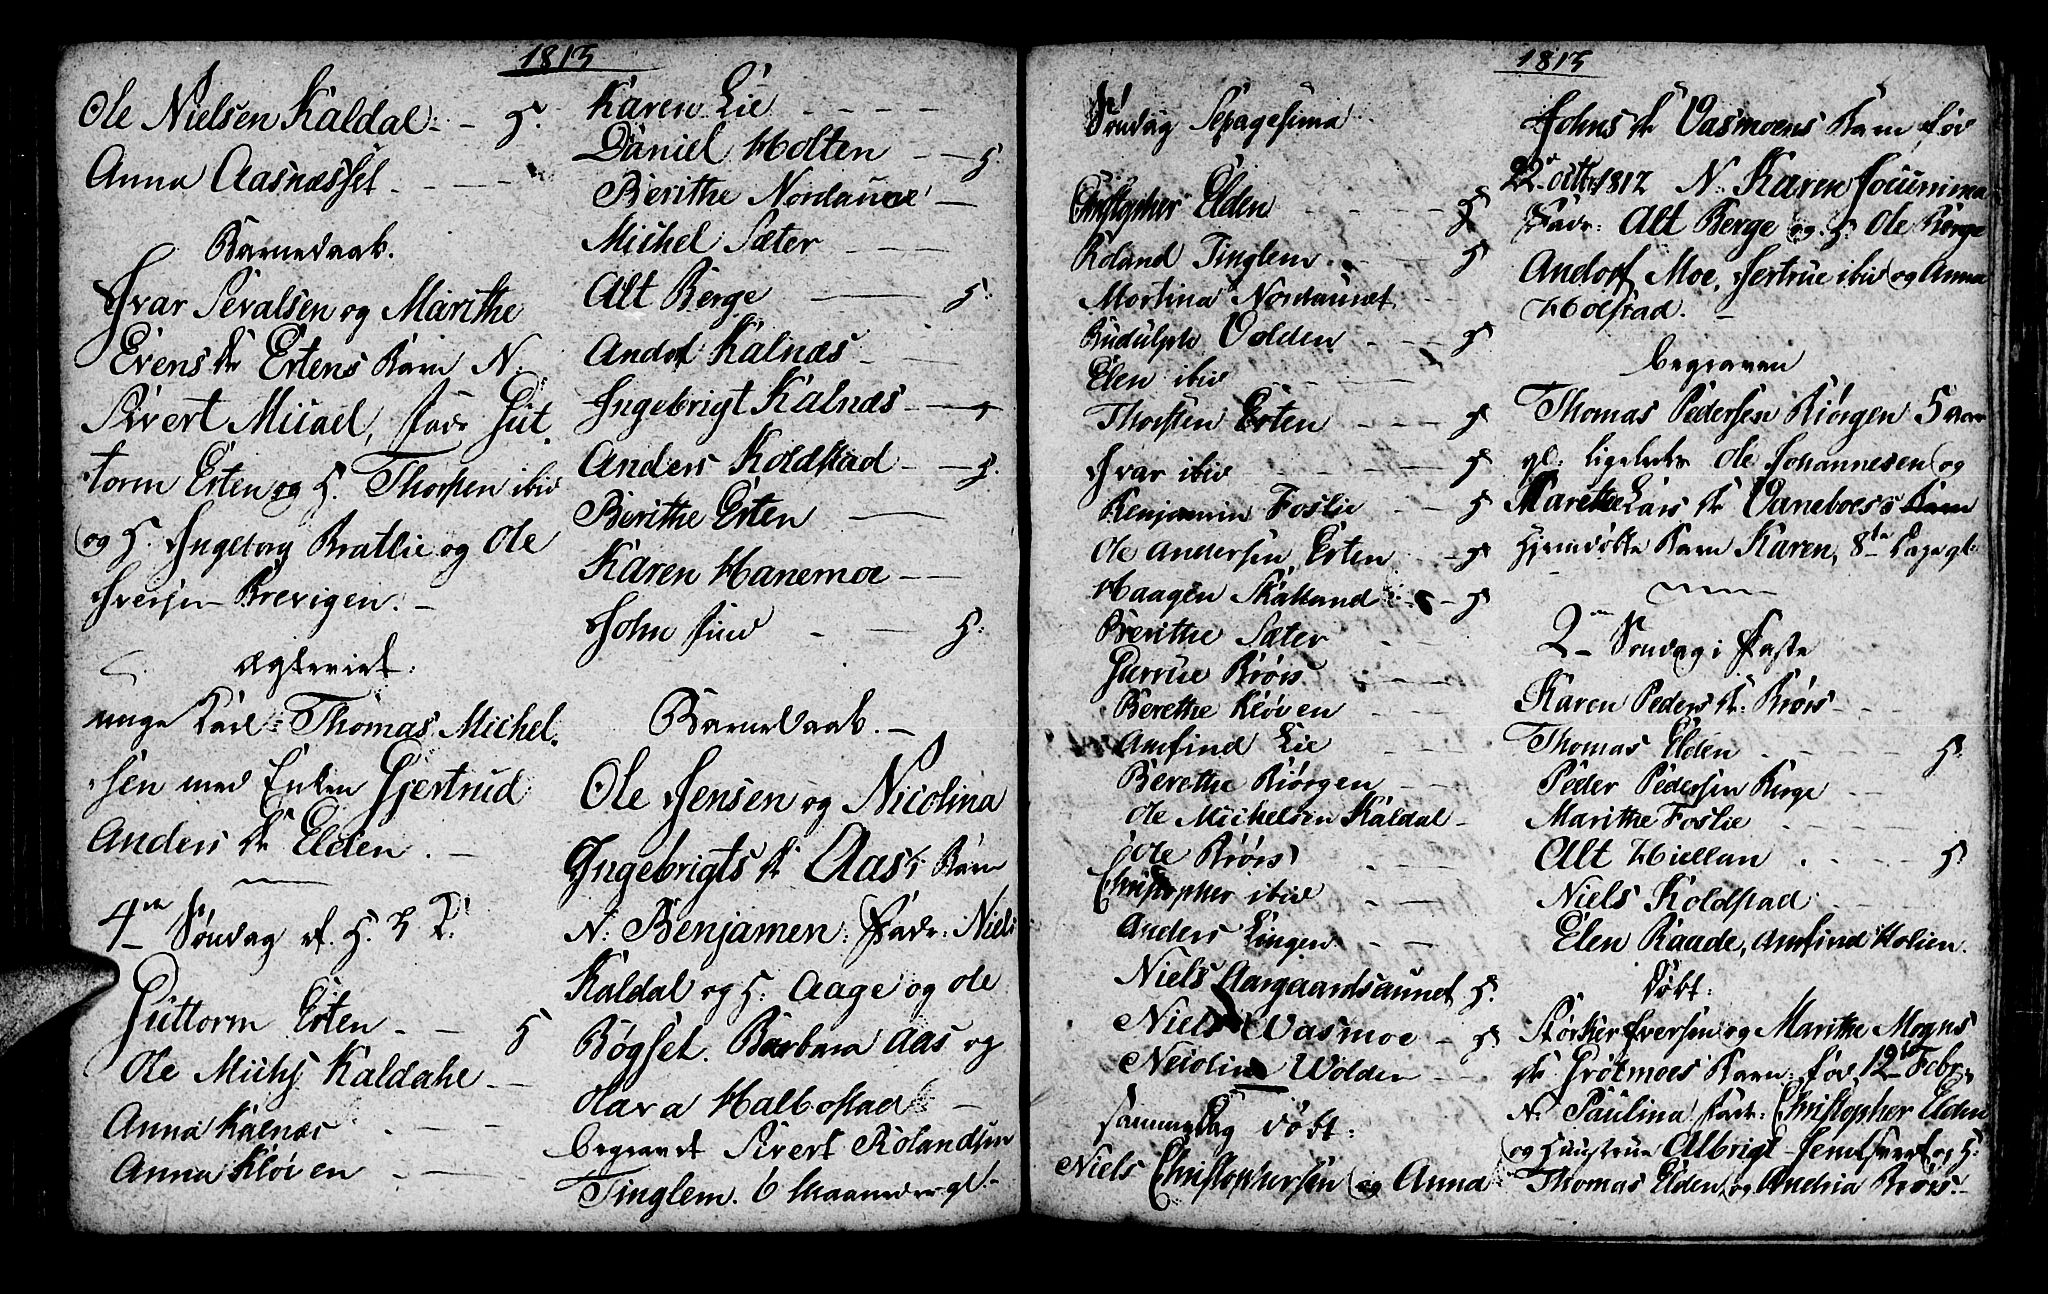 1813
Ole Nielsen Kaldal - - H.
Anna Aasnæsset - - -
Barnedaab.
Ivar Sevalsen og Marithe
Evens D: Ertens Barn N:
Sivert Micael, fadr Gut
torm Erten og H. Thorsten ibid
og H. Ingeborg Bratlie og Ole
Iversen Brevigen. -
Ægteviet:
unge Karl: Thomas Michel
sen med Enken Gjertrud
Anders D: Elden. -
4de Søndag ef. H. 3 K:
Guttorm Erten - - H
Ole Michs Kaldahl - -
Anna Kalnæs - -
Anna Kløven - -
Karen Lie - - - -
Daniel Holten - - H.
Berithe Nordaune -
Michel Sæter - -
Alt Berge - H:
Andor Kalnæs - -
Ingebrigt Kalnæs - - H
Anders Koldstad - - H.
Berithe Erten -
Karen Hanemoe - -
John - - H:
BarneDaab. -
Ole Jensen og Nicolina
Ingebrigts D: Aas's Barn
N: Benjamen: Fadr: Niels
Kaldal og H: Aage og Ole
Bøgset. Barbara Aas og
Olava Halbostad -
begravet Sivert Rolandsen
Tinglem. 6 Maaneder gl.
1813
Søndag Sepagesima
Christopher Elden - - - H
Roland Tinglem - - H
Martina Nordaunet - -
Rudulph Volden - - - H
Elen ibid - - -
Thorsten Erten - - - H
Ivar ibid - - - H
Benjamin Foslie - - H
Ole Andersen Erten - - H
Haagen Skatland - - H
Berithe Sæter - -
Gurrue Brøis - - -
Berethe Kløven - - -
Amfind Lie - - -
Berethe Kiørgen - -
Ole Michelsen Kaldal -
Ole Brøis - -
Christopher ibid - - -
Anders Lingen - -
Niels Aargaardsaunet H.
Niels Vasmoe - H
Nicolina Wolden - -
samme Dag Døbt:
Niels Christophersen og Anna
1813
Johns D: Vasmoens Barn fød
22de octr 1812 N: Karen Jocumina
Fadr: Alt Berge og H: Ole Berge
Andorf Moe, Jertrue ibid og Anna
Holstad. -
begraven
Thomas Pedersen Kiørgen 5 aar
gl: ligeledes Ole Johannesen og
Marethe Lars D: Vaneboes's Barn
hjemdøbte Barn Karen, 8te Dage gl:
2den Søndag i Faste
Karen Peders D: Brøis - -
Thomas Elden - - - H.
Peder Pedersen Berge - -
Marithe Foslie - - -
Alt Hiellan - - H
Niels Koldstad - -
Elen Raade, Amfind Holien.
Døbt:
Størker Iversen og Marithe Mogns
D: Grøtmoes Barn: fød 12te Febr:
N: Paulina fadr: Christopher Elden
og Hustrue Albrigt og H:
Thomas Elden og Andria Brøis. -